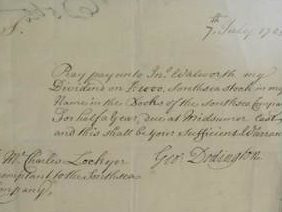 7th July 174
Sr.
Pray pay unto Jno. Walworth my
Dividend on £1000, Southsea Stock in my
Name in the Books of the Southsea Compa
For half a Year, due at Midsumer Last
and this shall be your Sufficient Warran
Mr. Charles Lockyer
Geo: Dodington.
ccomptant to the Southsea
ompany,